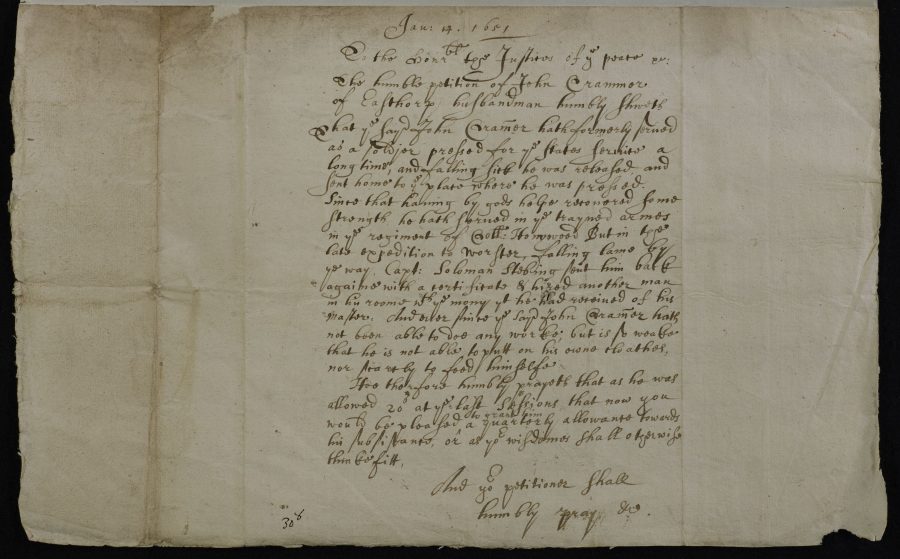 Jan: 14. 1651
To the Honrble the Justices of ye peace &c:
The humble petition of John Crammer
of Easthorp, husbandman humbly sheweth
That ye sayd John Cram̄er hath formerly served
as a soldjer pressed for ye states service a
long time, and falling sick he was released and
sent home to ye place where he was pressed.
Since that haveing by gods helpe recovered some
strength he hath served in ye trayned armes
in ye regiment of Coll: Honywood But in the
late expedition to Worster, falling lame by
ye way, Capt: Soloman Stebing sent him back
againe with a certificate & hired another man
in his roome wth ye mony yt he had received of his
master: And ever since ye sayd John Cram̄er hath
not been able to doe any worke, but is so weake
that he is not able to putt on his owne cloathes,
nor scarcely to feed himselfe
Hee therfore humbly prayeth that as he was
allowed 20s at ye last Sessions that now you
would be pleased to grant him a quarterly allowance towards
his subsistance, or as yor wisdomes shall otherwise
thinke fitt,
And yor petitioner shall
humbly pray &c.
30s